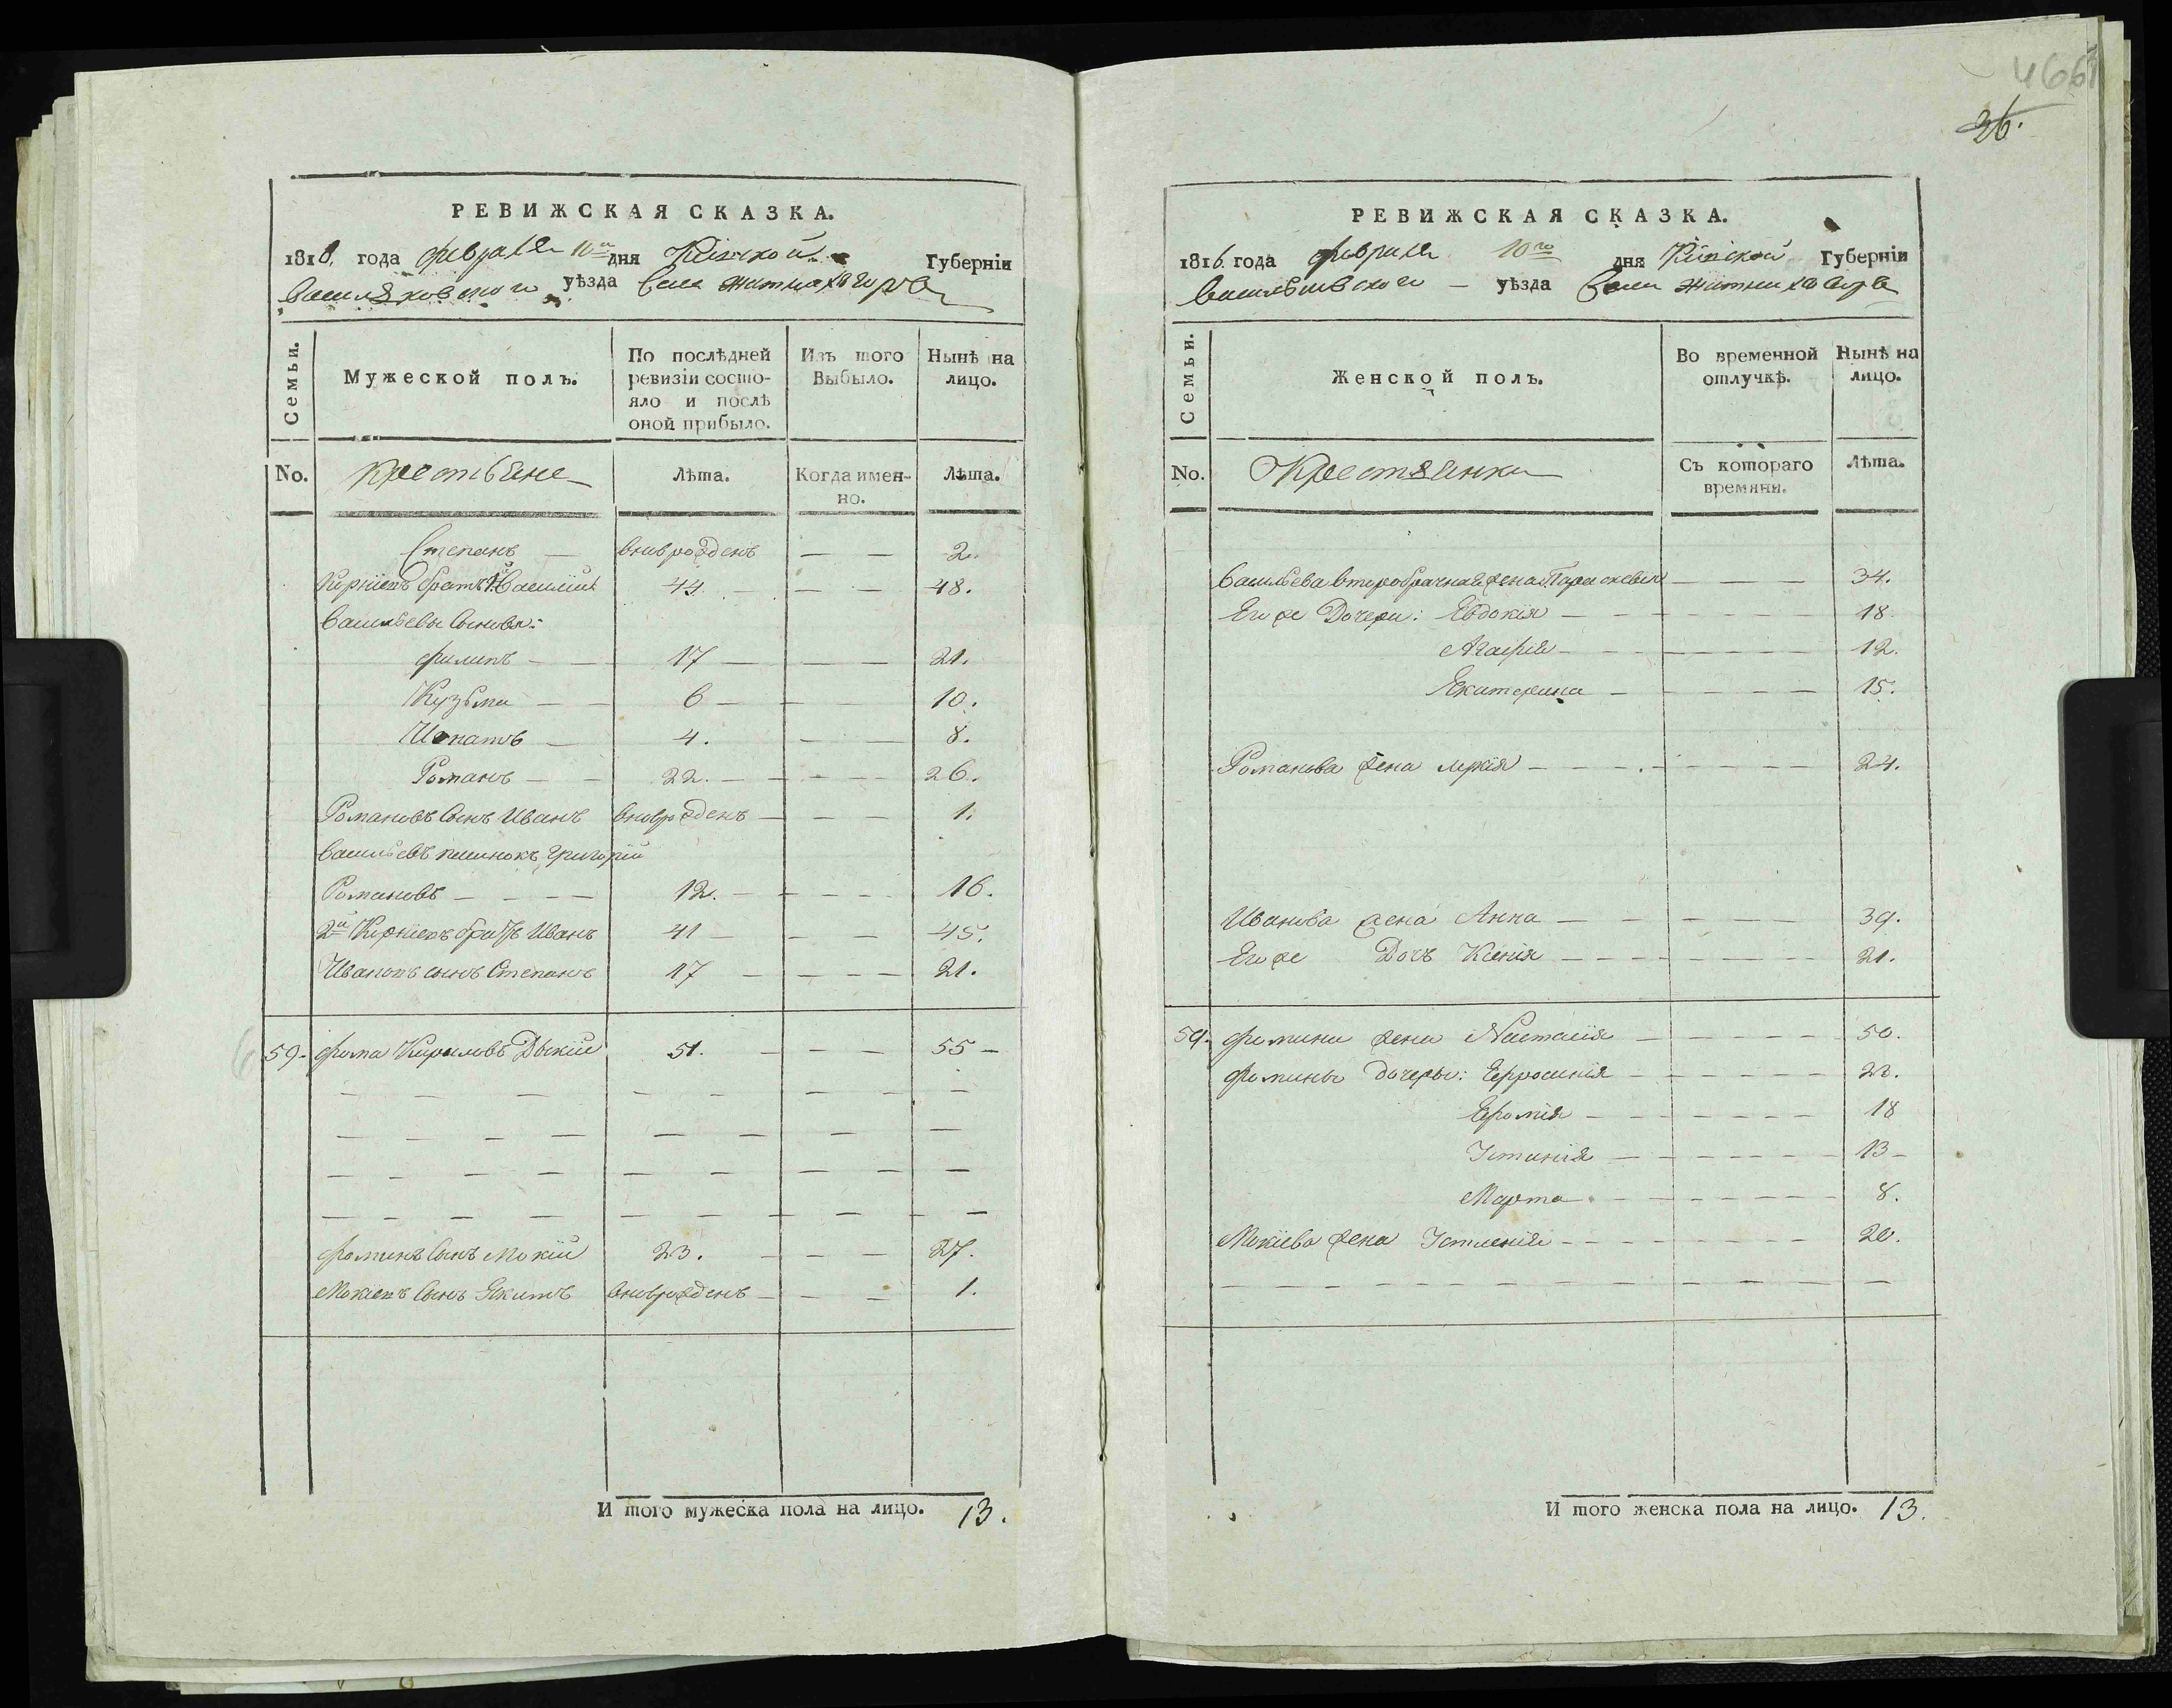 РЕВИЖСКАЯ СКАЗКА.
1816 года февраля 10го дня Кіевской Губерніи
Васильковского уѣзда Села Житнихъ горъ
Семьи.
Мужеской полъ.
По послѣдней ревизіи состояло и послѣ оной прибыло.
Изъ того Выбыло.
Нынѣ на лицо.
No.
Крестьяне
Лѣта.
Когда именно.
Лѣта.
Степанъ — вновьрожденъ — — 2.
братъ 1й Василий 44 — — — 48.
Васильевы Сыновя:
Филипъ — — 17 — — — 21.
Кузьма — — 6 — — — 10.
Игнатъ — 4. — — 8.
Романъ — — 22. — — — — 26.
Романовъ Сынъ Иванъ вновьрожденъ — — — 1.
Васильевъ Григорій
Романовъ — — — — 12. — — — — 16.
2й братъ Иванъ 41 — — — 45.
Ивановъ сынъ Степанъ 17 — — — — 21.
59. Фома Кириловъ Дикий 51. — — — 55 —
Фоминъ Сынъ Мокий 23. — — — 27.
Мокиевъ Сынъ Якимъ вновьрожденъ — — — 1.
И того мужеска пола на лицо. 13.
466
36.
РЕВИЖСКАЯ СКАЗКА.
1816 года февраля 10го дня Кіевской Губерніи
Васильковского — уѣзда Села Житнихъ Горъ
Семьи.
Женской полъ.
Во временной отлучкѣ.
Нынѣ на лицо.
No.
Крестьянки
Съ котораго времяни.
Лѣта.
Васильева второбрачная жена Параскевия — — — 34.
Его же Дочери: Евдокія — — — — — — 18.
Агафія — — — — — — 12.
Екатерина — — — — — 15.
Романова жена — — — — — — — — 24.
Иванова жена Анна — — — — — 39.
Его же Дочь Ксенія — — — — — — — 21.
59. Фомина жена Настасія — — — — — — 50.
Фомины дочеры: Ефросинія — — — — — — 22.
— — — — — — 18
Устинія — — — — — — 13 —
Марта — — — — — — 8.
Мокіева жена — — — — — — — — 20.
И того женска пола на лицо. 13.